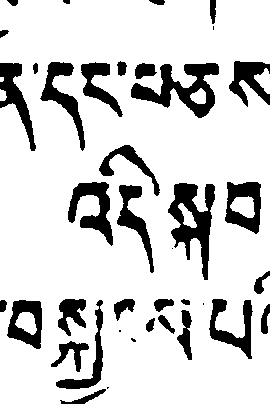 ན་དང་བཅས
འདི་སྐབ
བསྐྱངས་པ